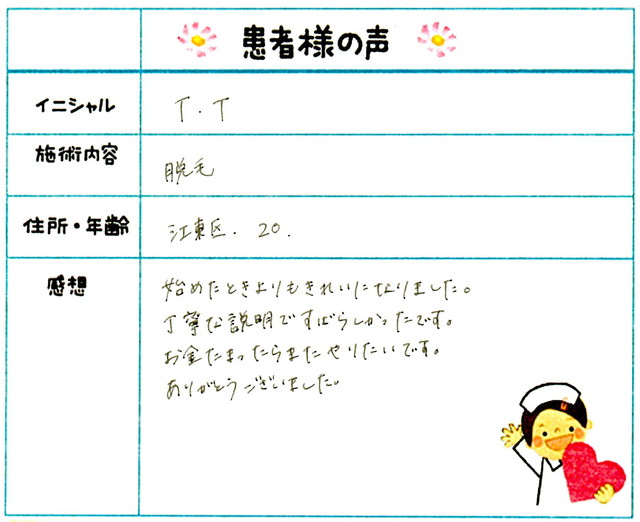 患者様の声
イニシャル T.T
施術内容 脱毛
住所・年齢 江東区. 20.
感想 始めたときよりもきれいになりました。
丁寧な説明ですばらしかったです。
お金たまったらまたやりたいです。
ありがとうございました。